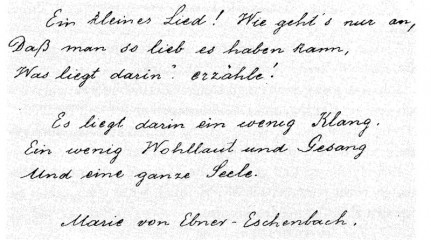 Ein kleiner Lied! Wie geht's nur an,
Daß man so lieb es haben kann,
Was liegt darin? erzähle!
Es liegt darin ein wenig Klang.
Ein wenig Wohllaut und Gesang
Und eine ganze Seele.
Marie von Ebner-Eschenbach.